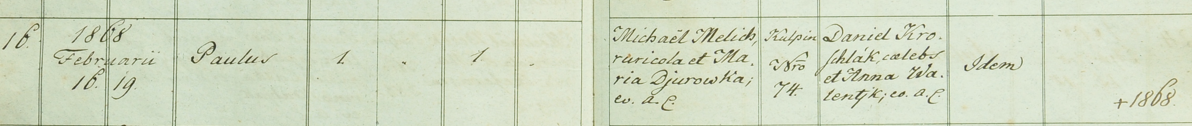 16.
1868
Februarii
16. 19.
Paulus
1
.
1
.
Michaël Melich,
ruricola et Ma-
ria Djurowka;
ev. a. c.
Kulpin
Nro
74.
Daniel Kro-
schlák, cælebs
et Anna Wa-
lentjk; ev. a. c.
Idem
+1868.